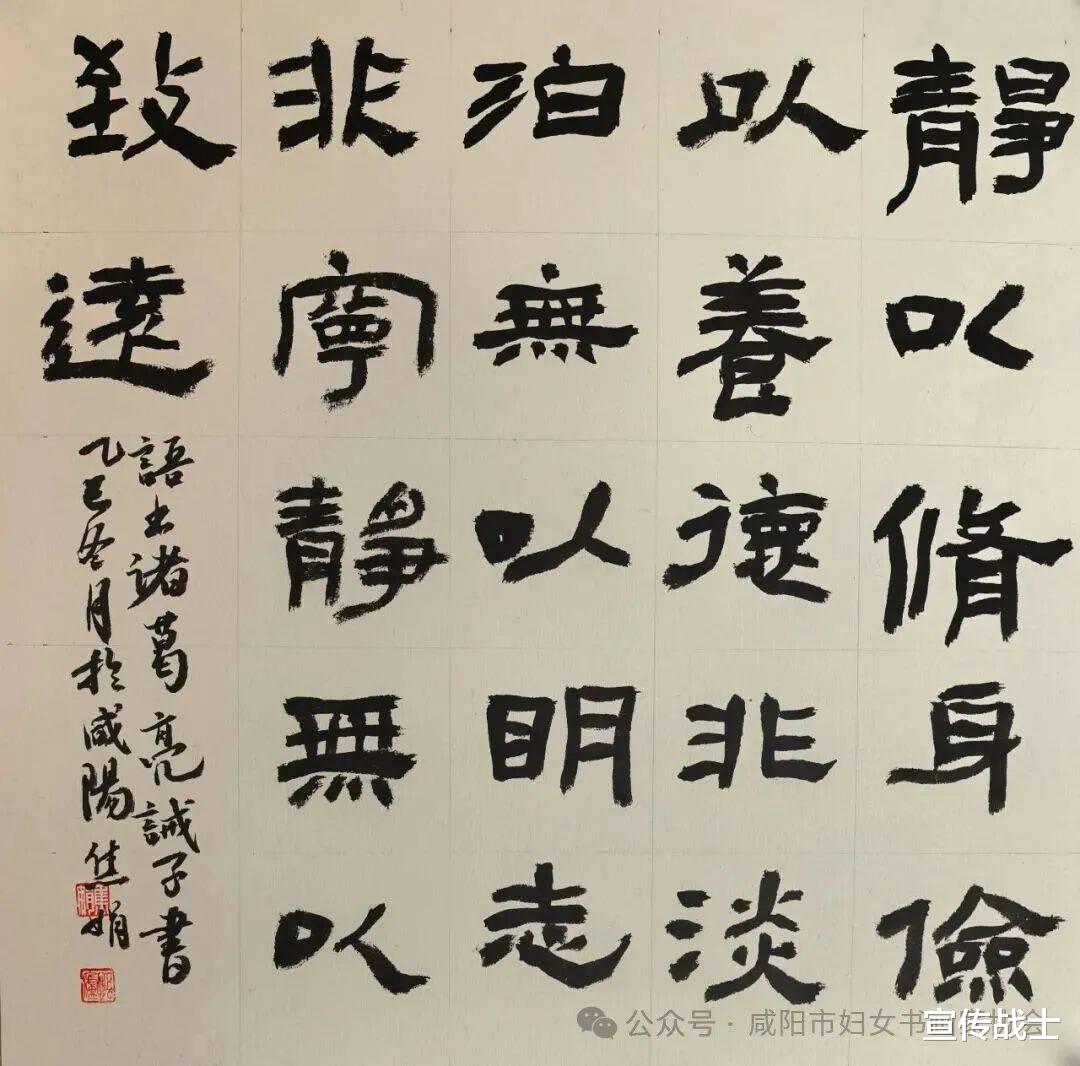 靜以脩身儉
以養德非淡
泊無以明志
非寧靜無以
致遠
語出諸葛亮誡子書
乙巳冬月於咸陽焦娟
公众号·咸阳市妇女书
宣传战士